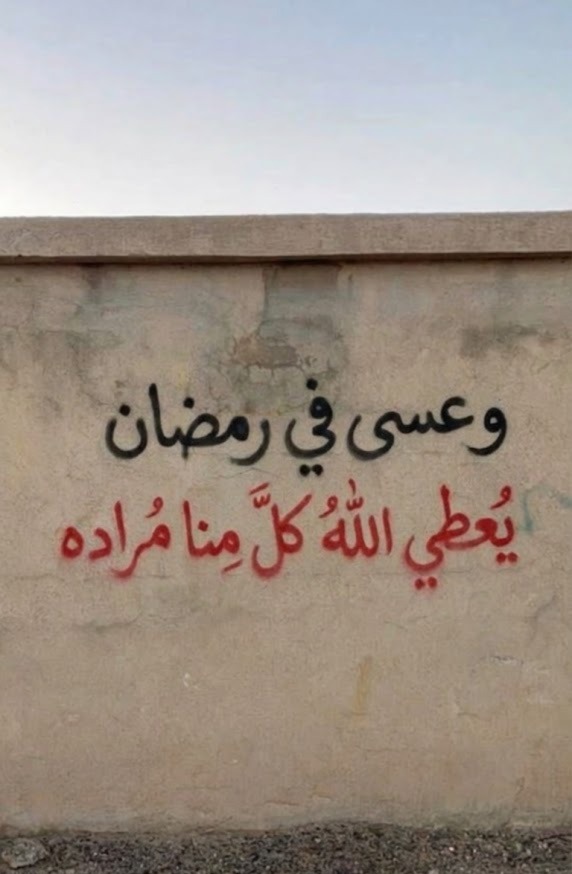 وعسى في رمضان
يُعطي اللهُ كلَّ مِنا مُراده